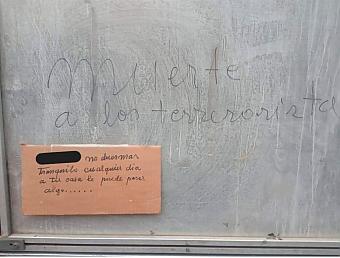 Muerte
a los terrerorista
no duermar
tranquilo cualquier dia
a tu casa le puede paser
algo......